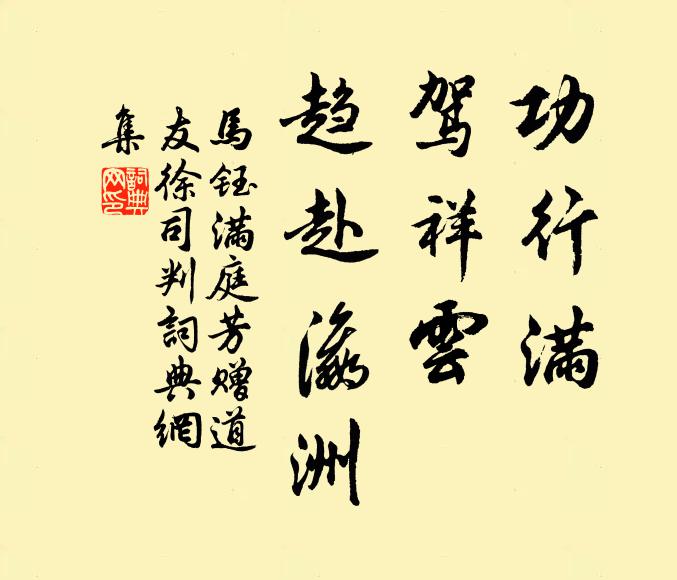 功行滿
駕祥雲
趨赴瀛洲
馬鈺滿庭芳贈道
友徐司判詞典網
集
詞典網印